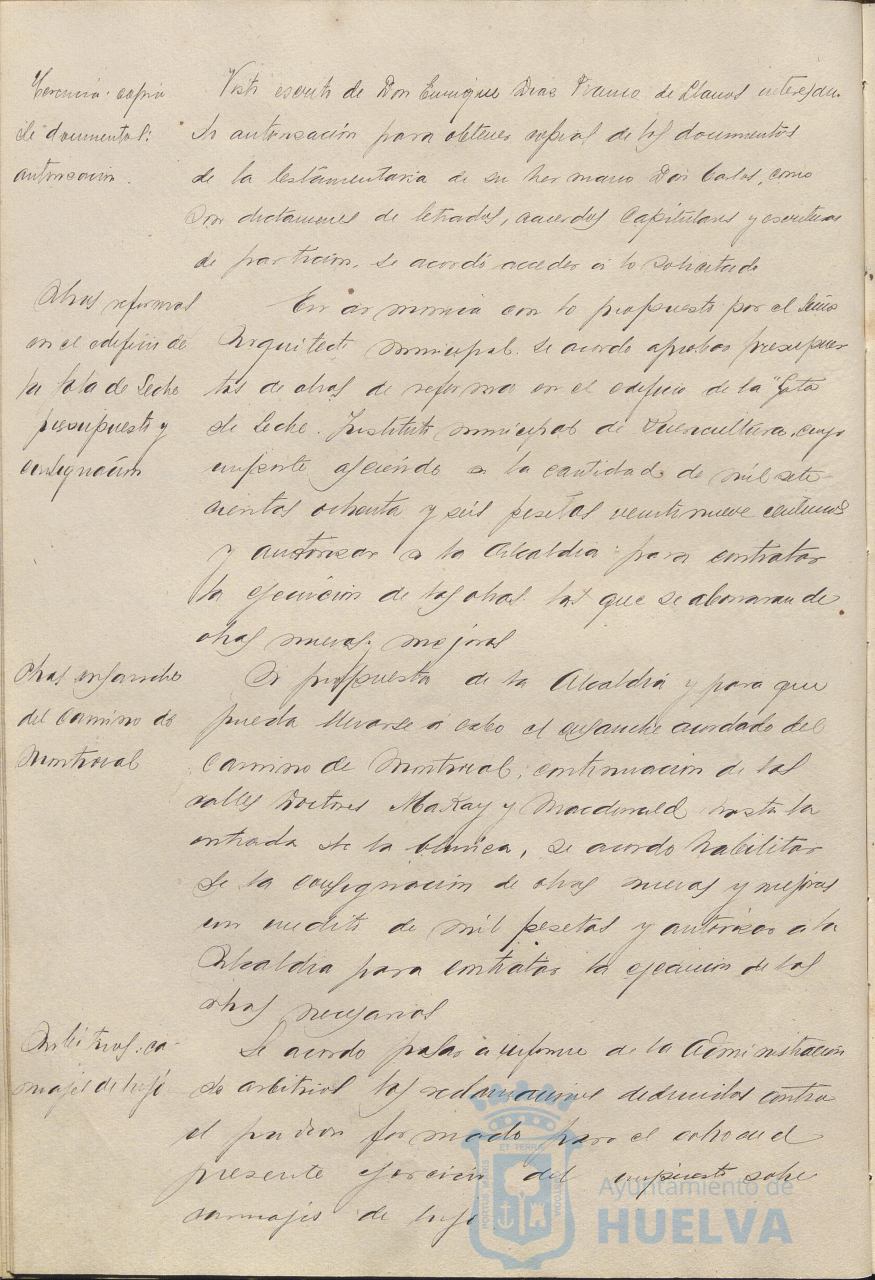 Herencia: copia
de documentos:
autorizacion.
Visto escrito de Don Enrique Diaz Franco de Llanos interesan-
do autorizacion para obtener copias de los documentos
de la testamentaria de su hermano Don Carlos, como
son dictamenes de letrados, acuerdos Capitulares y escrituras
de particion, se acordó acceder á lo solicitado
Obras reformas
en el edificio de
la Gota de Leche
presupuesto y
consignación
En armonia con lo propuesto por el Señor
Arquitecto municipal. se acordo aprobar presupues-
tos de obras de reformas en el edificio de la "Gota
de leche. Instituto municipal de Puericultura, cuyo
importe asciende a la cantidad de mil sete-
cientas ochenta y seis pesetas veintinueve centimos
y autorizar a la Alcaldia para contratar
la ejecución de las obras las que se abonaran de
obras nuevas y mejoras
Obras ensanche
del Camino de
Montrocal
A propuesta de la Alcaldia y para que
pueda llevarse á cabo el ensanche acordado del
Camino de Montrocal, continuación de las
calles Doctores MaKay y Macdonald hasta la
entrada de la clinica, se acordo habilitar
de la consignación de obras nuevas y mejoras
un credito de mil pesetas y autorizar a la
Alcaldia para contratar la ejecucion de las
obras necesarias
Arbitrios: ca-
rruajes de lujo
Se acordo pasar a informe de la Administración
de arbitrios las reclamaciones deducidas contra
el padron formado para el cobro en el
presente ejercicio del impuesto sobre
carruajes de lujo
Ayuntamiento de
HUELVA